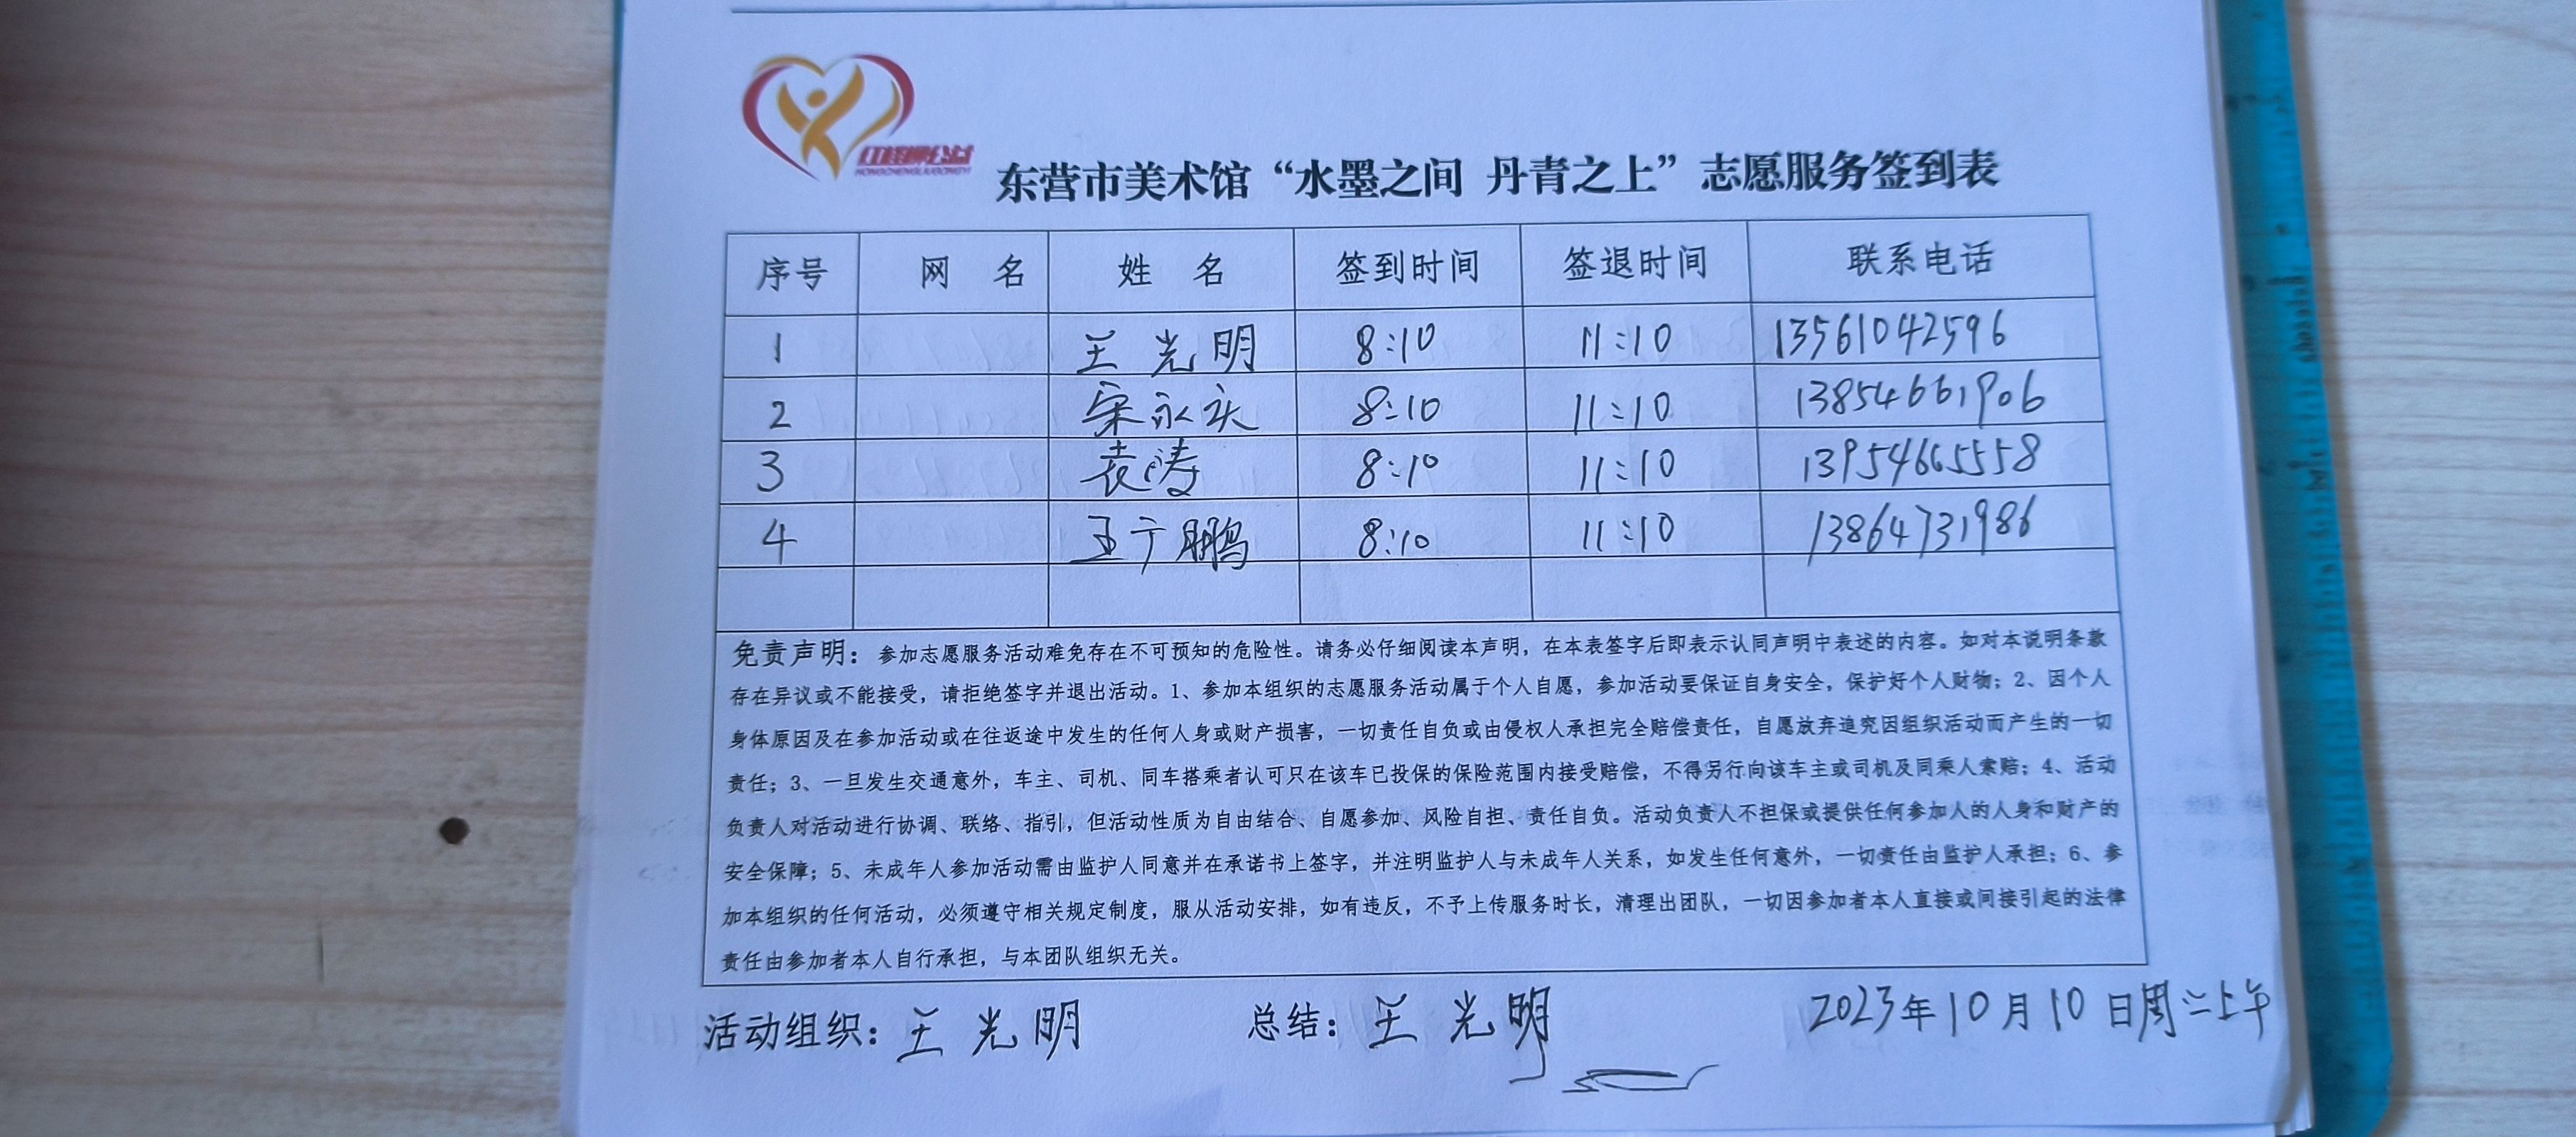 红柽柳公益
HONGCHENGLIUGONGYI
东营市美术馆“水墨之间 丹青之上”志愿服务签到表
序号 网 名 姓 名 签到时间 签退时间 联系电话
1 王光明 8:10 11:10 13561042596
2 宋永庆 8:10 11:10 13854661906
3 袁涛 8:10 11:10 13954665558
4 王于鹏 8:10 11:10 13864731986
免责声明：参加志愿服务活动难免存在不可预知的危险性。请务必仔细阅读本声明，在本表签字后即表示认同声明中表述的内容。如对本说明条款
存在异议或不能接受，请拒绝签字并退出活动。1、参加本组织的志愿服务活动属于个人自愿，参加活动要保证自身安全，保护好个人财物；2、因个人
身体原因及在参加活动或在往返途中发生的任何人身或财产损害，一切责任自负或由侵权人承担完全赔偿责任，自愿放弃追究因组织活动而产生的一切
责任；3、一旦发生交通意外，车主、司机、同车搭乘者认可只在该车已投保的保险范围内接受赔偿，不得另行向该车主或司机及同乘人索赔；4、活动
负责人对活动进行协调、联络、指引，但活动性质为自由结合、自愿参加、风险自担、责任自负。活动负责人不担保或提供任何参加人的人身和财产的
安全保障；5、未成年人参加活动需由监护人同意并在承诺书上签字，并注明监护人与未成年人关系，如发生任何意外，一切责任由监护人承担；6、参
加本组织的任何活动，必须遵守相关规定制度，服从活动安排，如有违反，不予上传服务时长，清理出团队，一切因参加者本人直接或间接引起的法律
责任由参加者本人自行承担，与本团队组织无关。
活动组织：王光明 总结：王光明 2023年10月10日周二上午